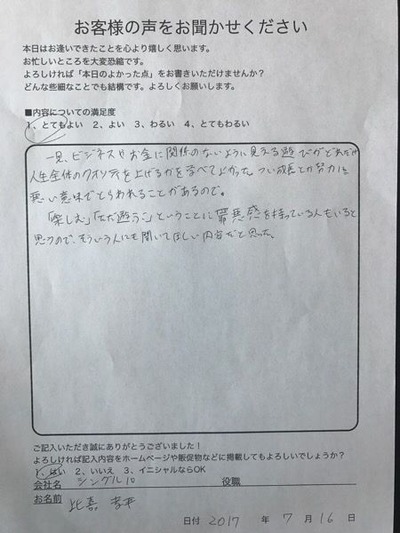 お客様の声をお聞かせください
本日はお逢いできたことを心より嬉しく思います。
お忙しいところを大変恐縮です。
よろしければ「本日のよかった点」をお書きいただけませんか？
どんな些細なことでも結構です。よろしくお願いします。
■内容についての満足度
1、とてもよい 2、よい 3、わるい 4、とてもわるい
一見、ビジネスやお金に関係のないように見える遊びがどれだけ
人生全体のクオリティを上げるかを学べてよかった。つい成長とか努力に
悪い意味でとらわれることがあるので。
「楽しむ」「ただ遊ぶ」ということに罪悪感を持っている人もいると
思うので、そういう人にも聞いてほしい内容だと思った。
ご記入いただき誠にありがとうございました！
よろしければ記入内容をホームページや販促物などに掲載してもよろしいでしょうか？
1、はい 2、いいえ 3、イニシャルならOK
会社名 シングル10 役職
お名前 比嘉
日付 2017 年 7 月 16 日